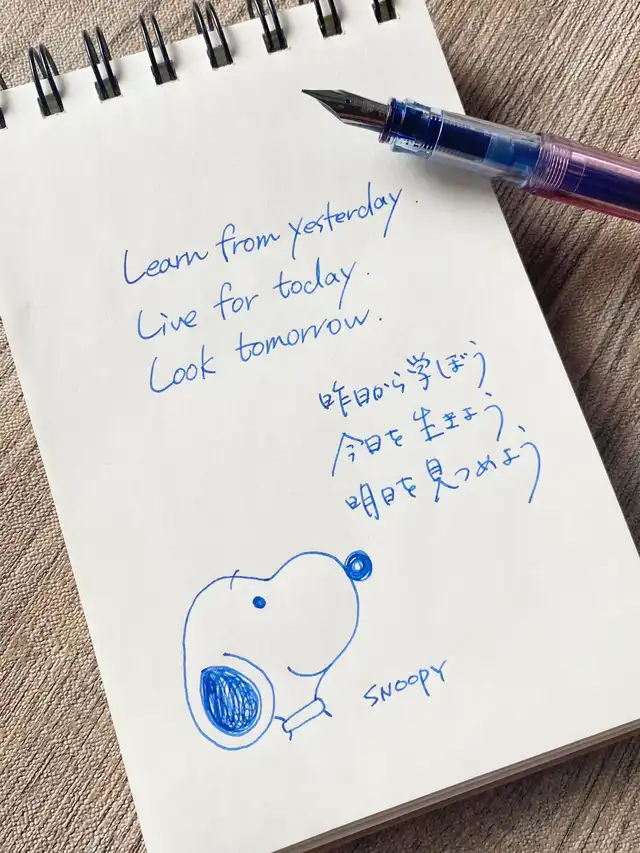 Learn from yesterday.
Live for today.
Look tomorrow.
昨日から学ぼう
今日を生きよう、
明日を見つめよう
SNOOPY